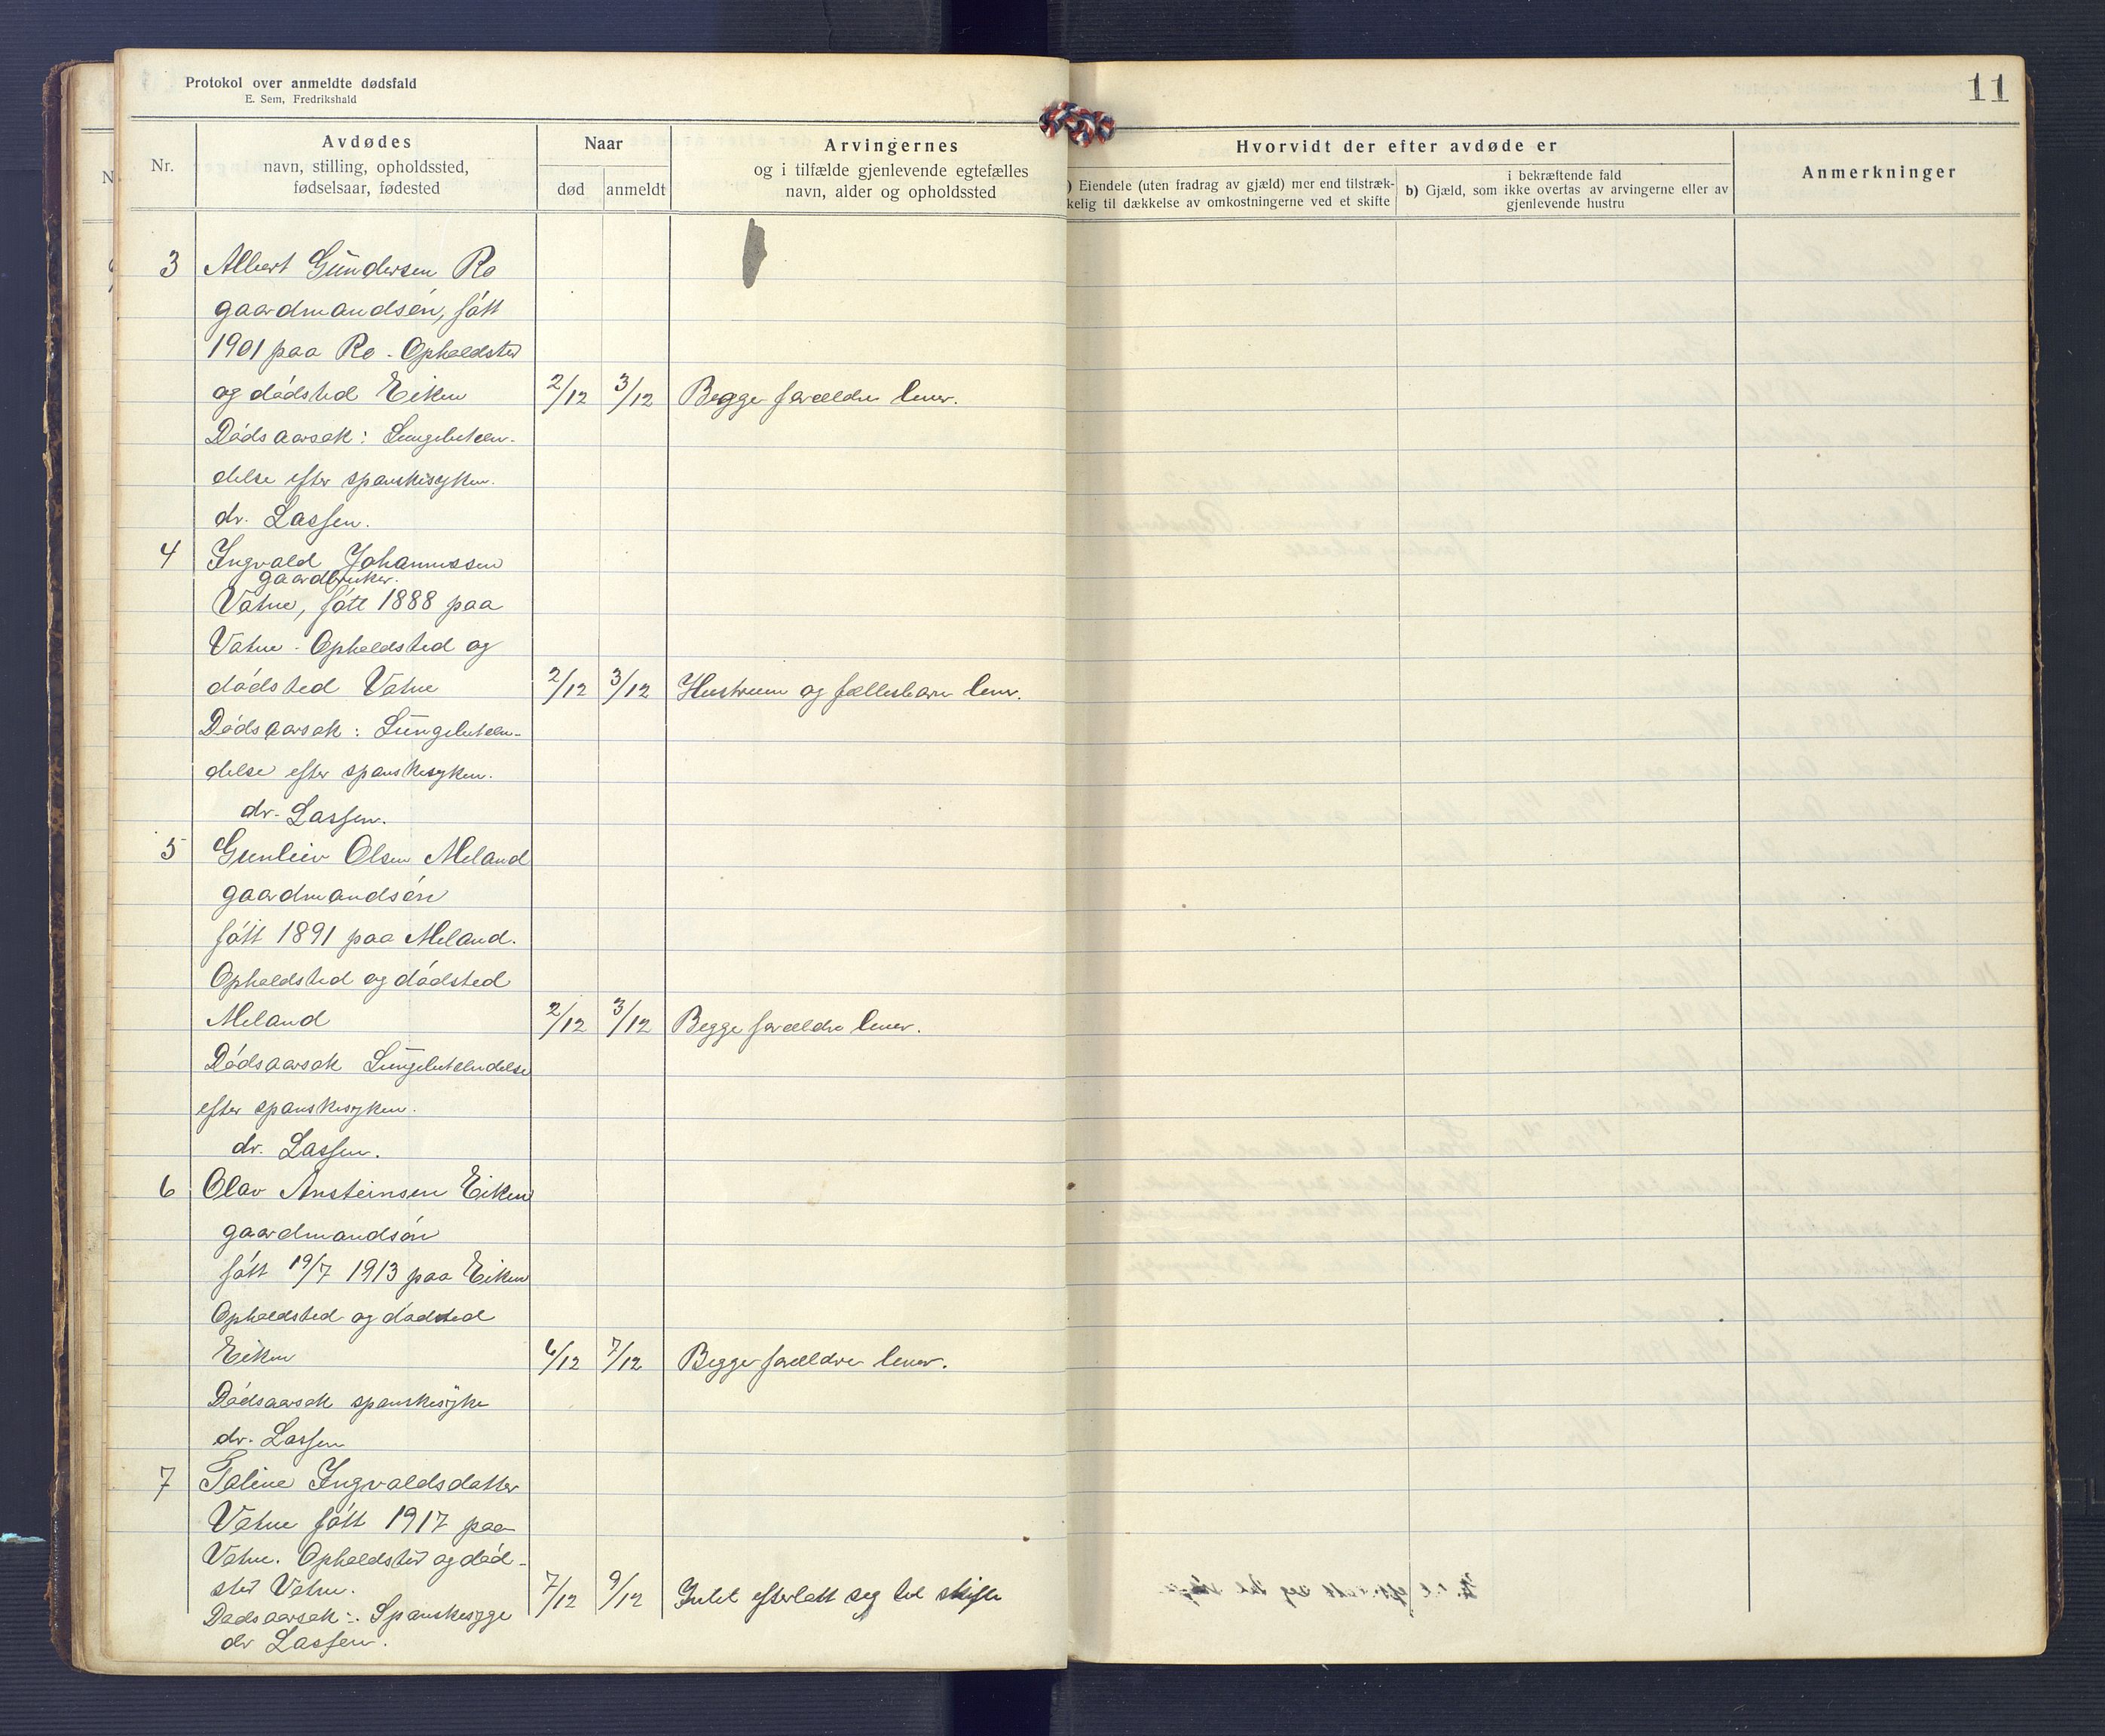 Protokol over anmeldte dødsfald
E. Sem, Fredrikshald
11
Nr.
Avdødes
navn, stilling, opholdssted,
fødselsaar, fødested
Naar
død
anmeldt
Arvingernes
og i tilfælde gjenlevende egtefælles
navn, alder og opholdssted
Hvorvidt der efter avdøde er
) Eiendele (uten fradrag av gjæld) mer end tilstræk-
kelig til dækkelse av omkostningerne ved et skifte
i bekræftende fald
b) Gjæld, som ikke overtas av arvingerne eller av
gjenlevende hustru
Anmerkninger
3 Albert Gundersen Ro
gaardmandsøn, føtt
1901 paa Ro - Opholdsted
og dødsted Eiken 2/12 3/12 Begge forældre lever.
Dødsaarsak: Lungebetæn-
delse efter spanskesyken.
dr. Lassen.
4 Ingvald Johannessen
gaardbruker.
Vatne, føtt 1888 paa
Vatne - Opholdsted og
dødsted Vatne 2/12 3/12 Hustruen og fællesbarn lever.
Dødsaarsak: Lungebetæn-
delse efter spanskesyken.
dr. Lassen.
5 Gunleiv Olsen Meland
gaardmandsøn
føtt 1891 paa Meland.
Opholdsted og dødsted
Meland 2/12 3/12 Begge forældre lever.
Dødsaarsak Lungebetændelse
efter spanskesyken.
dr. Lassen.
6 Olav Ansteinsen Eiken
gaardmandsøn
føtt 19/7 1913 paa Eiken
Opholdsted og dødsted
Eiken 6/12 7/12 Begge forældre lever.
Dødsaarsak spanskesyke
dr. Lassen
7 Taline Ingvaldsdatter
Vatne føtt 1917 paa
Vatne. Opholdsted og død-
sted Vatne. 7/12 9/12 Intet efterlatt seg til skifte
Dødsaarsak:. Spanskesyge
dr Lassen.